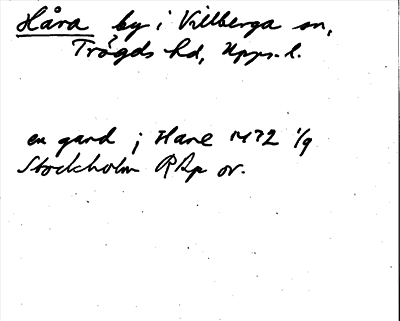 Håra by i Villberga sn,
Trögds hd, Upps. l.
en gard i Hare 1472 1/9
Stockholm RAp or.